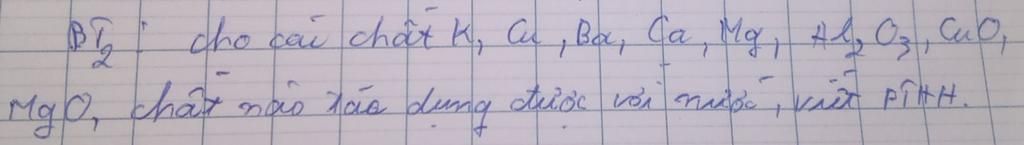 BT2: cho các chất K, Cu, Ba, Ca, Mg, Al2O3, CuO,
MgO, chất nào tác dụng được với nước, viết PTHH.